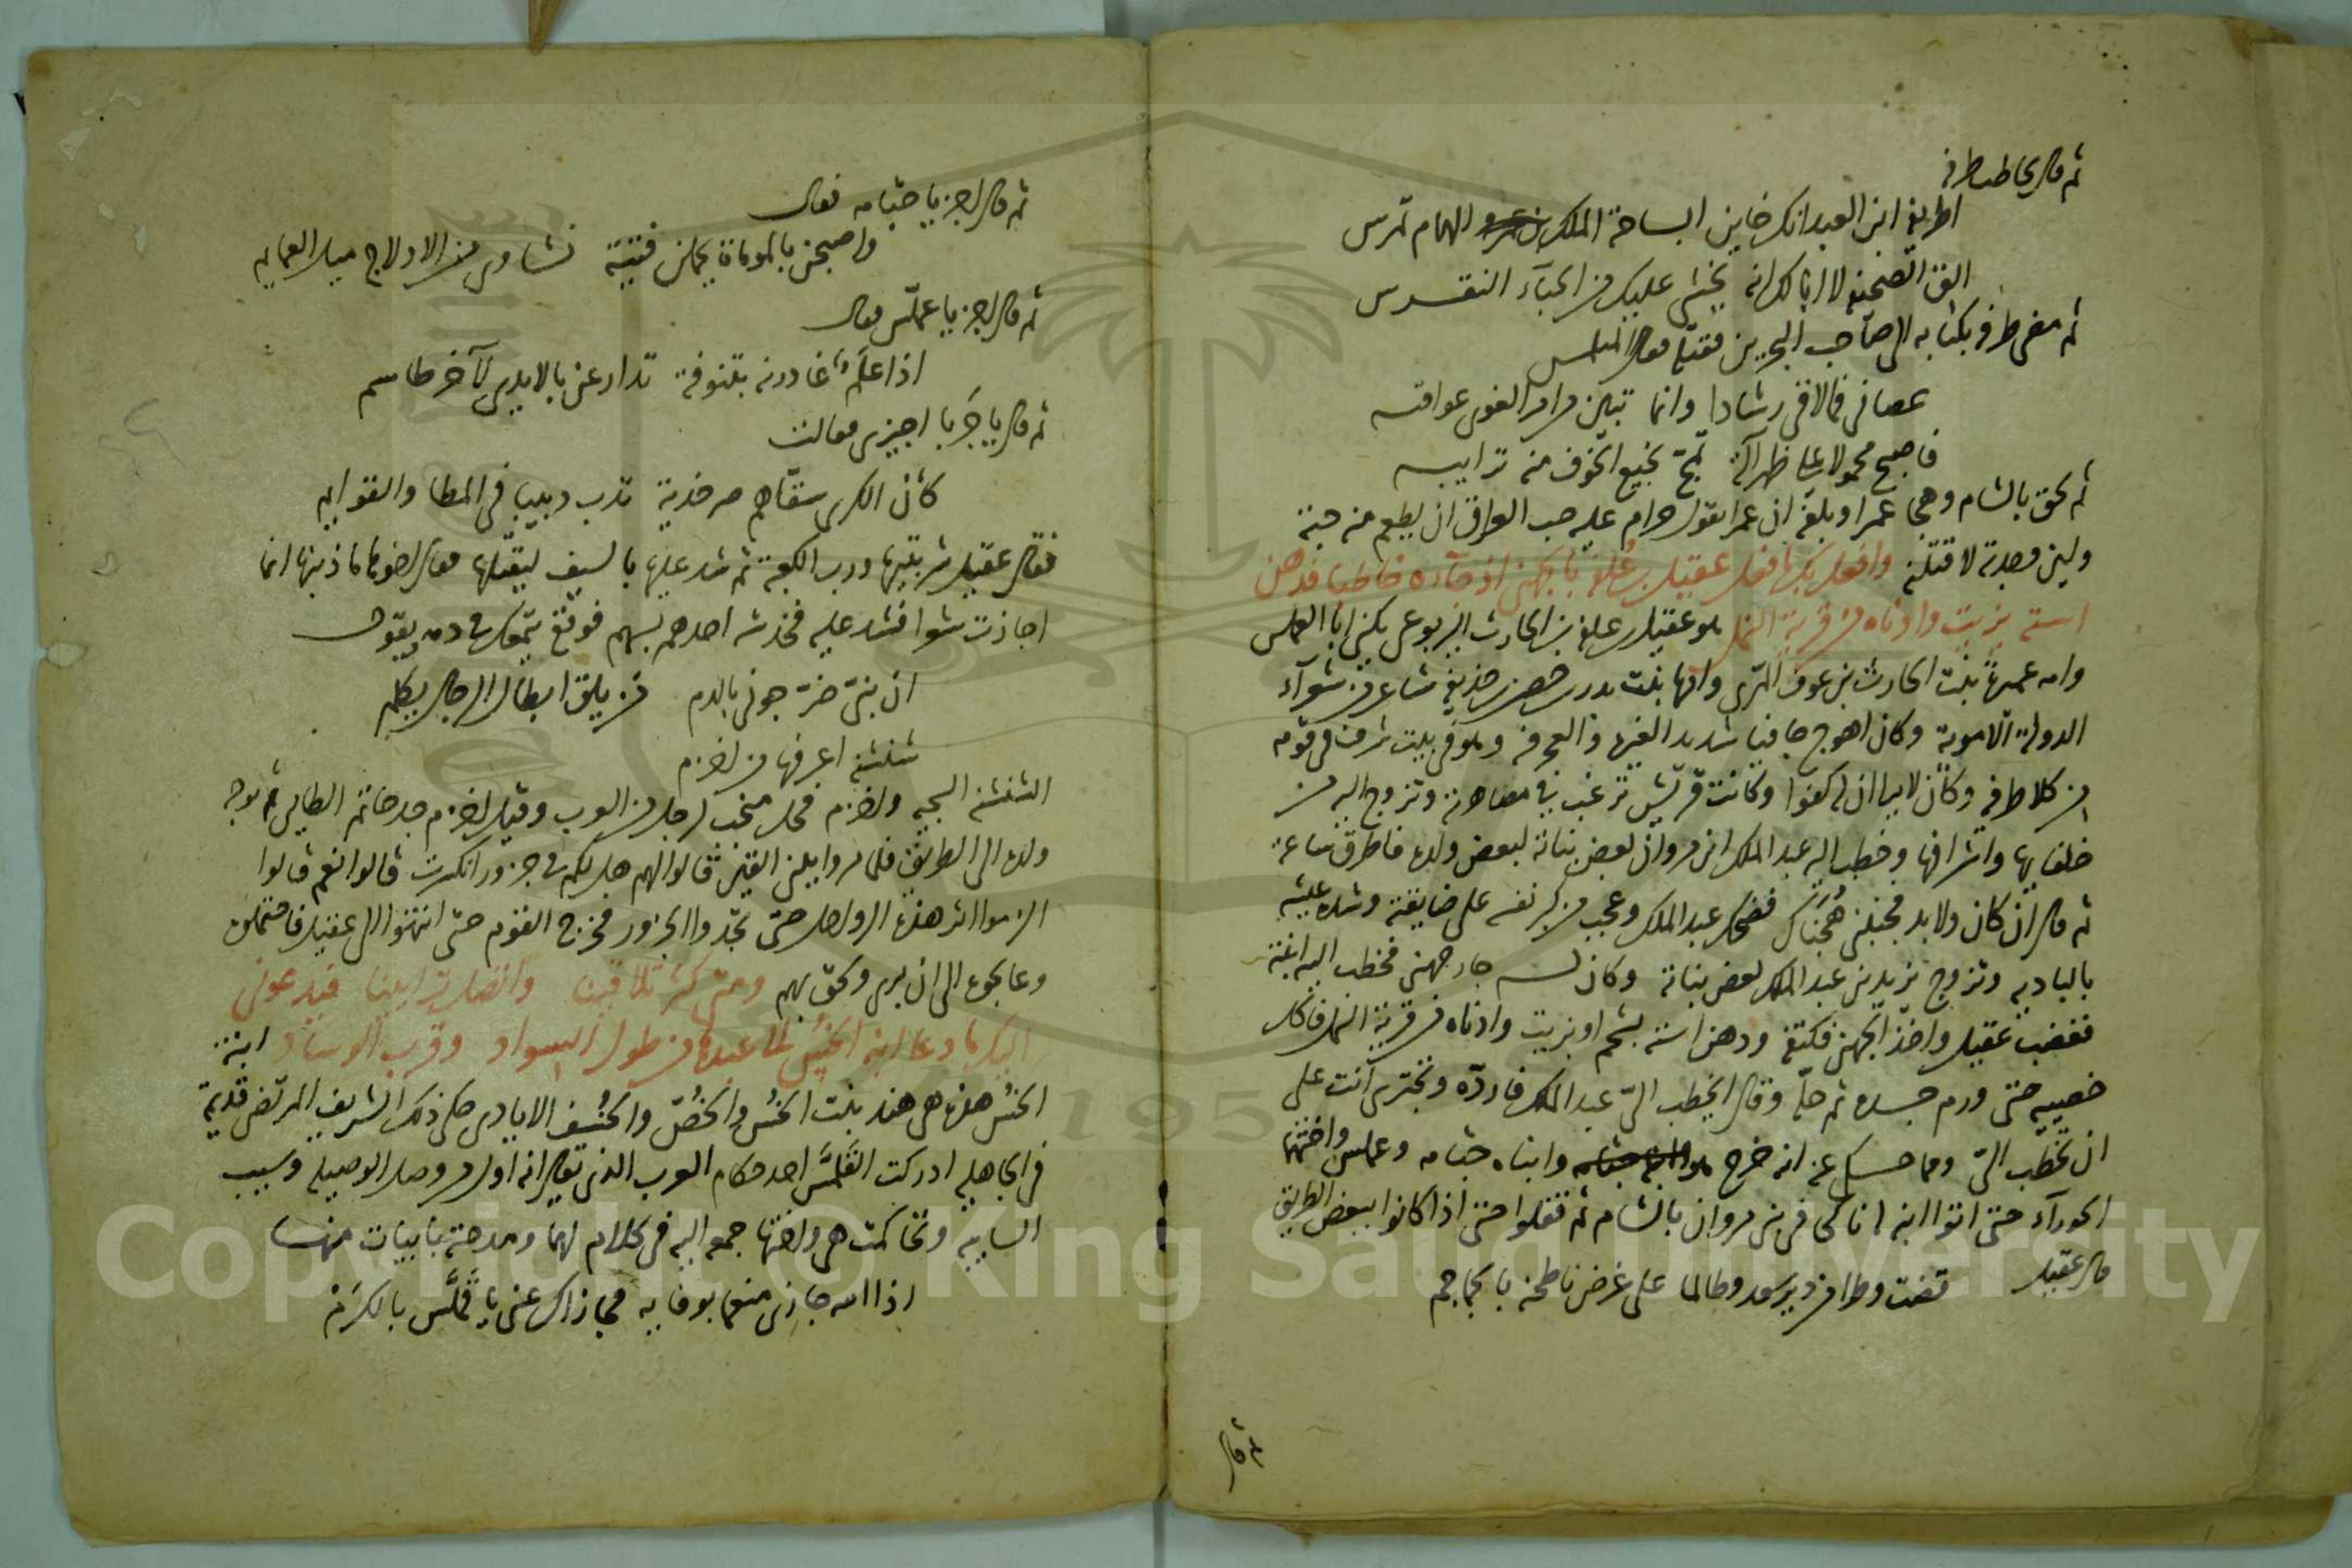 ثم قال يخاطب طرفة
اطريفة ابن العبد انك خاين ابساحة الملك الهمام تمرس
الق الصحيفة لا ابا لك انه يخشى عليك من الحباء النقرس
ثم مضى طرفة بكتابه الى صاحب البحرين فقتله فقال المتلمس
عصانى فما لاقى رشادا وانما تبين من امر الغوى عواقبه
فاصبح محمولا على ظهر آلة تمج نجيع الجوف منه ترايبه
ثم لحق بالشام وهجا عمرا وبلغه ان عمرا يقول حرام عليه حب العراق ان يطعم منه حبة
ولين وجدته لاقتلنه وافعل بك ما فعل عقيل بن علفة بالجهنى اذ جآءه خاطبا فدهن
استه بزيت وادناه من قرية النمل هو عقيل بن علفة بن الحارث اليربوعى يكنى ابا العملس
وامه عمرة بنت الحارث بن عوف المرى وامها بنت بدر بن حصن بن حذيفة شاعر من شعرآء
الدولة الاموية وكان اهوج جافيا شديد الغيرة والعجرفة وهو فى بيت شرف فى قومه
من كلا طرفيه وكان لا يرا ان له كفوا وكانت قريش ترغب في مصاهرته وتزوج اليه من
خلفايها واشرافها وخطب اليه عبد الملك ابن مروان بعض بناته لبعض ولده فاطرق ساعة
ثم قال ان كان ولا بد فجنبنى هُجَناك فضحك عبد الملك وعجب من كبر نفسه على ضايقته وشدة عيشه
بالباديه وتزوج يزيد بن عبد الملك بعض بناته وكان له جار جهنى فخطب اليه ابنته
فغضب عقيل واخذ الجهنى فكتفه ودهن استه بشحم او بزيت وادناه من قرية النمل فاكل
خصييه حتى ورم جسده ثم حله وقال ايخطب الىّ عبد الملك فاردّه وتجترى انت على
ان تخطب الىّ ومما حكى عنه انه خرج هو وابناه جثامه وعملس واختهما
الجوراء حتى اتوا ابنة له ناكحا فى بنى مروان بالشام ثم قفلوا حتى اذا كانوا ببعض الطريق
قال عقيل قضت وطرا من دير سعد وطالما على عرض ناطحنه بالجماجم
ثم قال
ثم قال اجز يا جثامه فقال
واصبحن بالموماة يحملن فتية نشاوى من الادلاج ميل العمايم
ثم قال اجز يا عملّس فقال
اذا علمٌ غادرنه بتنوفة تذارعن بالايدى لآخر طاسم
ثم قال يا جربا اجيزى فقالت
كأن الكرى سقّاهم صرخدية تدب دبيبا فى المطا والقوايم
فقال عقيل شربتيها ورب الكعبة ثم شد عليها بالسيف ليقتلها فقال اخوها ما ذنبها انما
اجازت شعرا فشد عليه فخدشه احدهم بسهم فوقع يتمعك فى دمه ويقول
ان بنىّ ضرّجونى بالدم من يلق ابطال الرجال يكلم
شنشنة اعرفها من اخزم
الشنشنة السجيه واخزم فحل منجب لرجل من العرب وقيل اخزم جد حاتم الطايى ثم توجه
ولده الى الطريق فلما مروا ببنى القين قالوا لهم هل لكم فى جزور انكسرت قالوا نعم قالوا
الزموا اثر هذه الرواحل حتى تجدوا الجزور فخرج القوم حتى انتهوا الى عقيل فاحتملوه
وعالجوه الى ان برى ولحق بهم ومتى كثر تلاقينا واتصل ترايينا فيدعونى
اليك ما دعا ابنة الخسُ الى عبدها من طول السواد وقرب الوساد ابنة
الخسُ هذه هى هند بنت الخُس والخُصّ والخُسف الايادى حكى ذلك الشريف المرتضى قديمة
فى الجاهلية ادركت القَلمَّس احد حكام العرب الذى يقال انه اول من وصل الوصيلة وسيب
السايبه وتحاكمت هى واختها جمعه اليه فى كلام لهما ومدحته بابيات منها
اذا الله جازى منعما بوفايه فجازاك عنى يا قَلمَّس بالكرَمْ